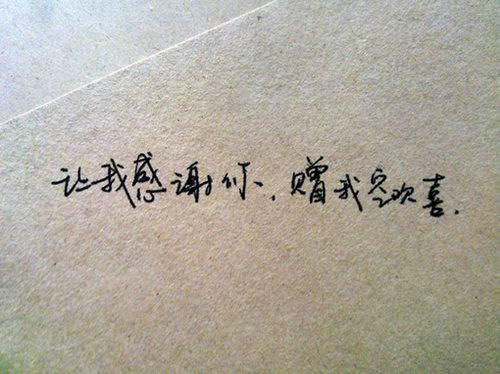 让我感谢你，赠我空欢喜.